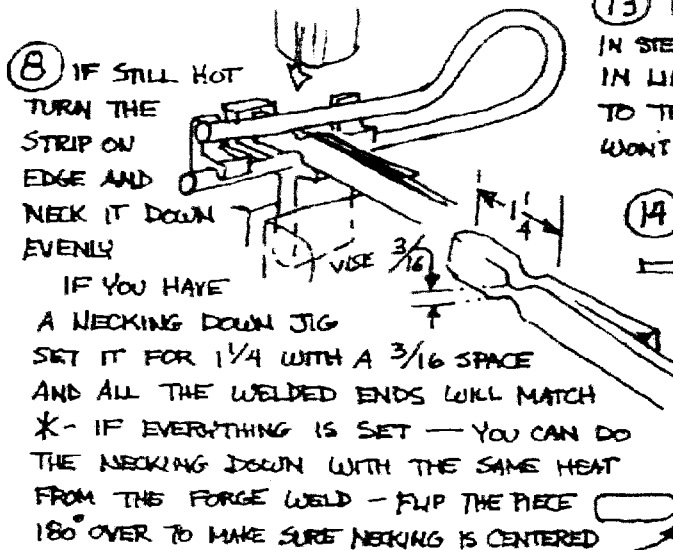 8 IF STILL HOT
TURN THE
STRIP ON
EDGE AND
NECK IT DOWN
EVENLY
IF YOU HAVE
A NECKING DOWN JIG
SET IT FOR 1 1/4 WITH A 3/16 SPACE
AND ALL THE WELDED ENDS WILL MATCH
*- IF EVERYTHING IS SET — YOU CAN DO
THE NECKING DOWN WITH THE SAME HEAT
FROM THE FORGE WELD - FLIP THE PIECE
180° OVER TO MAKE SURE NECKING IS CENTERED
VISE
3/16
1 1/4
13
IN STE
IN LI
TO T
WON'T
14